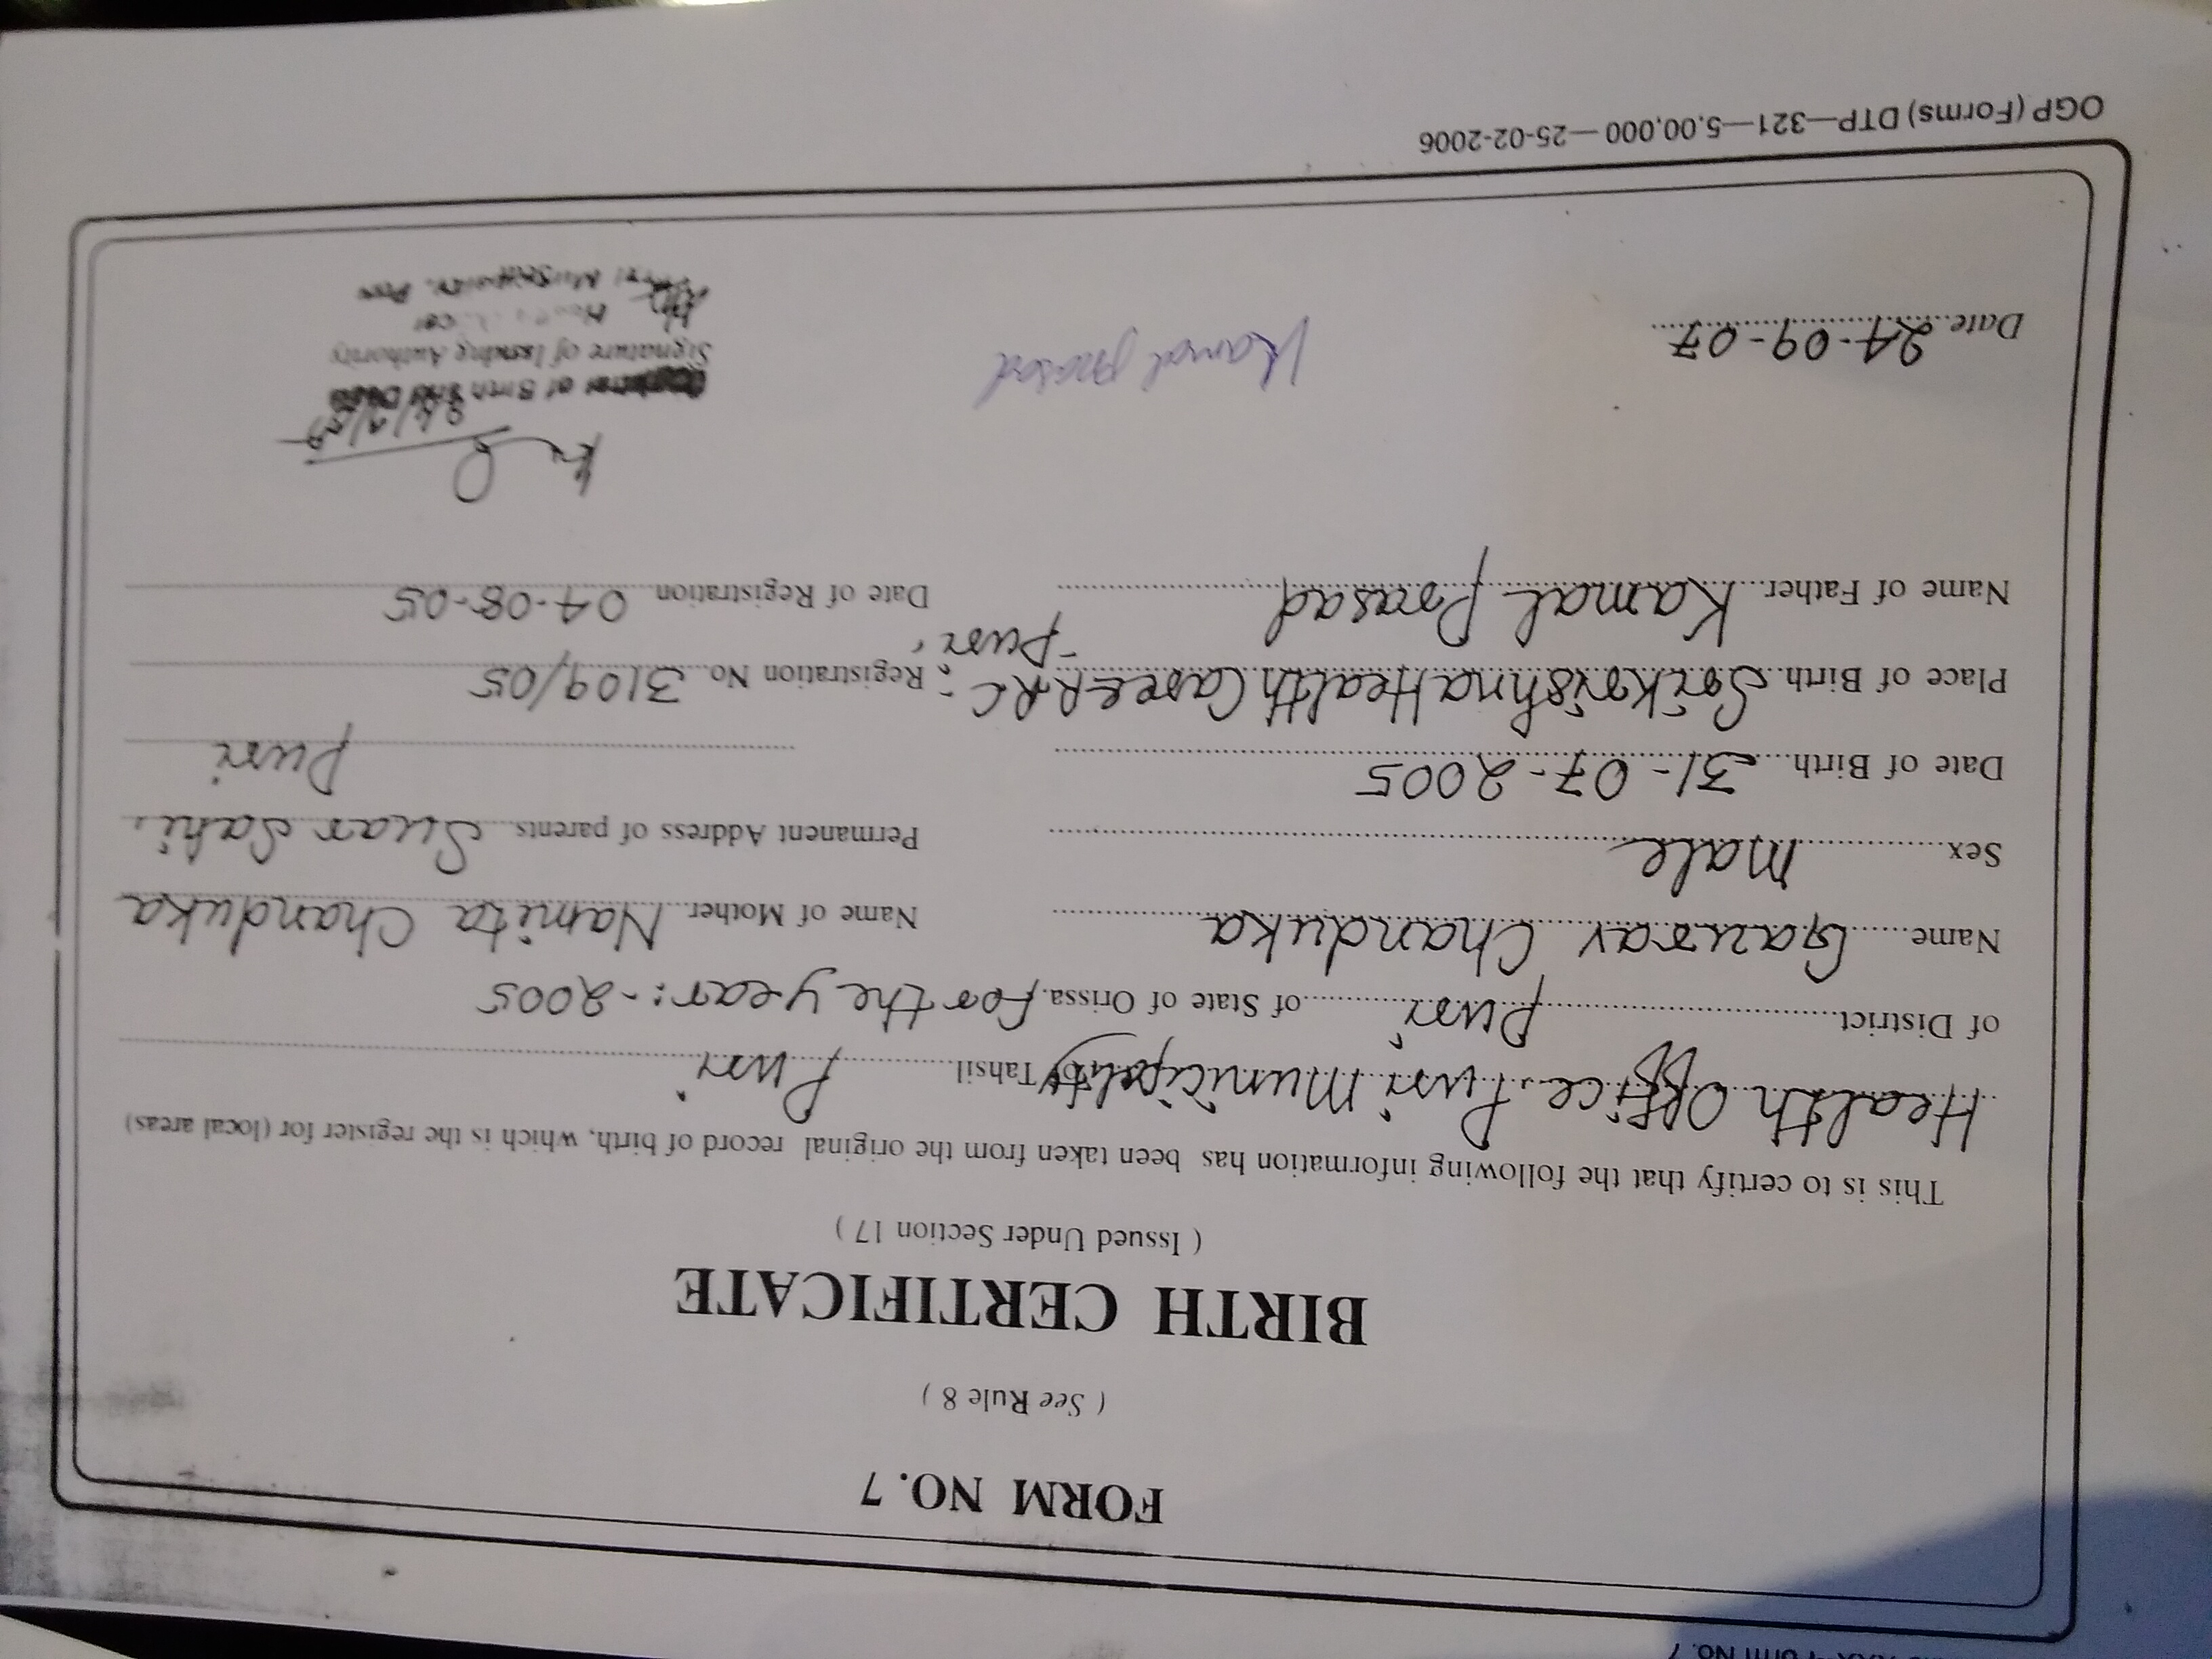 Form No. 7
FORM NO. 7
( See Rule 8 )
BIRTH CERTIFICATE
( Issued Under Section 17 )
This is to certify that the following information has been taken from the original record of birth, which is the register for (local areas)
Health Office, Puri Municipality of Tahsil Puri
of District Puri of State of Orissa. For the year:- 2005
Name Gaurav Chanduka Name of Mother Namita Chanduka
Sex Male Permanent Address of parents Suar Sahi,
Date of Birth 31-07-2005 Puri
Place of Birth Srikrishna Health Care R.R.C : Registration No. 3109/05
-Puri,
Name of Father Kamal Prasad Date of Registration 04-08-05
24/9/07
Birth and Death
Signature of Issuing Authority
Date 24-09-07 Kamal prasad
Municipality, Puri
OGP (Forms) DTP—321—5,00,000—25-02-2006